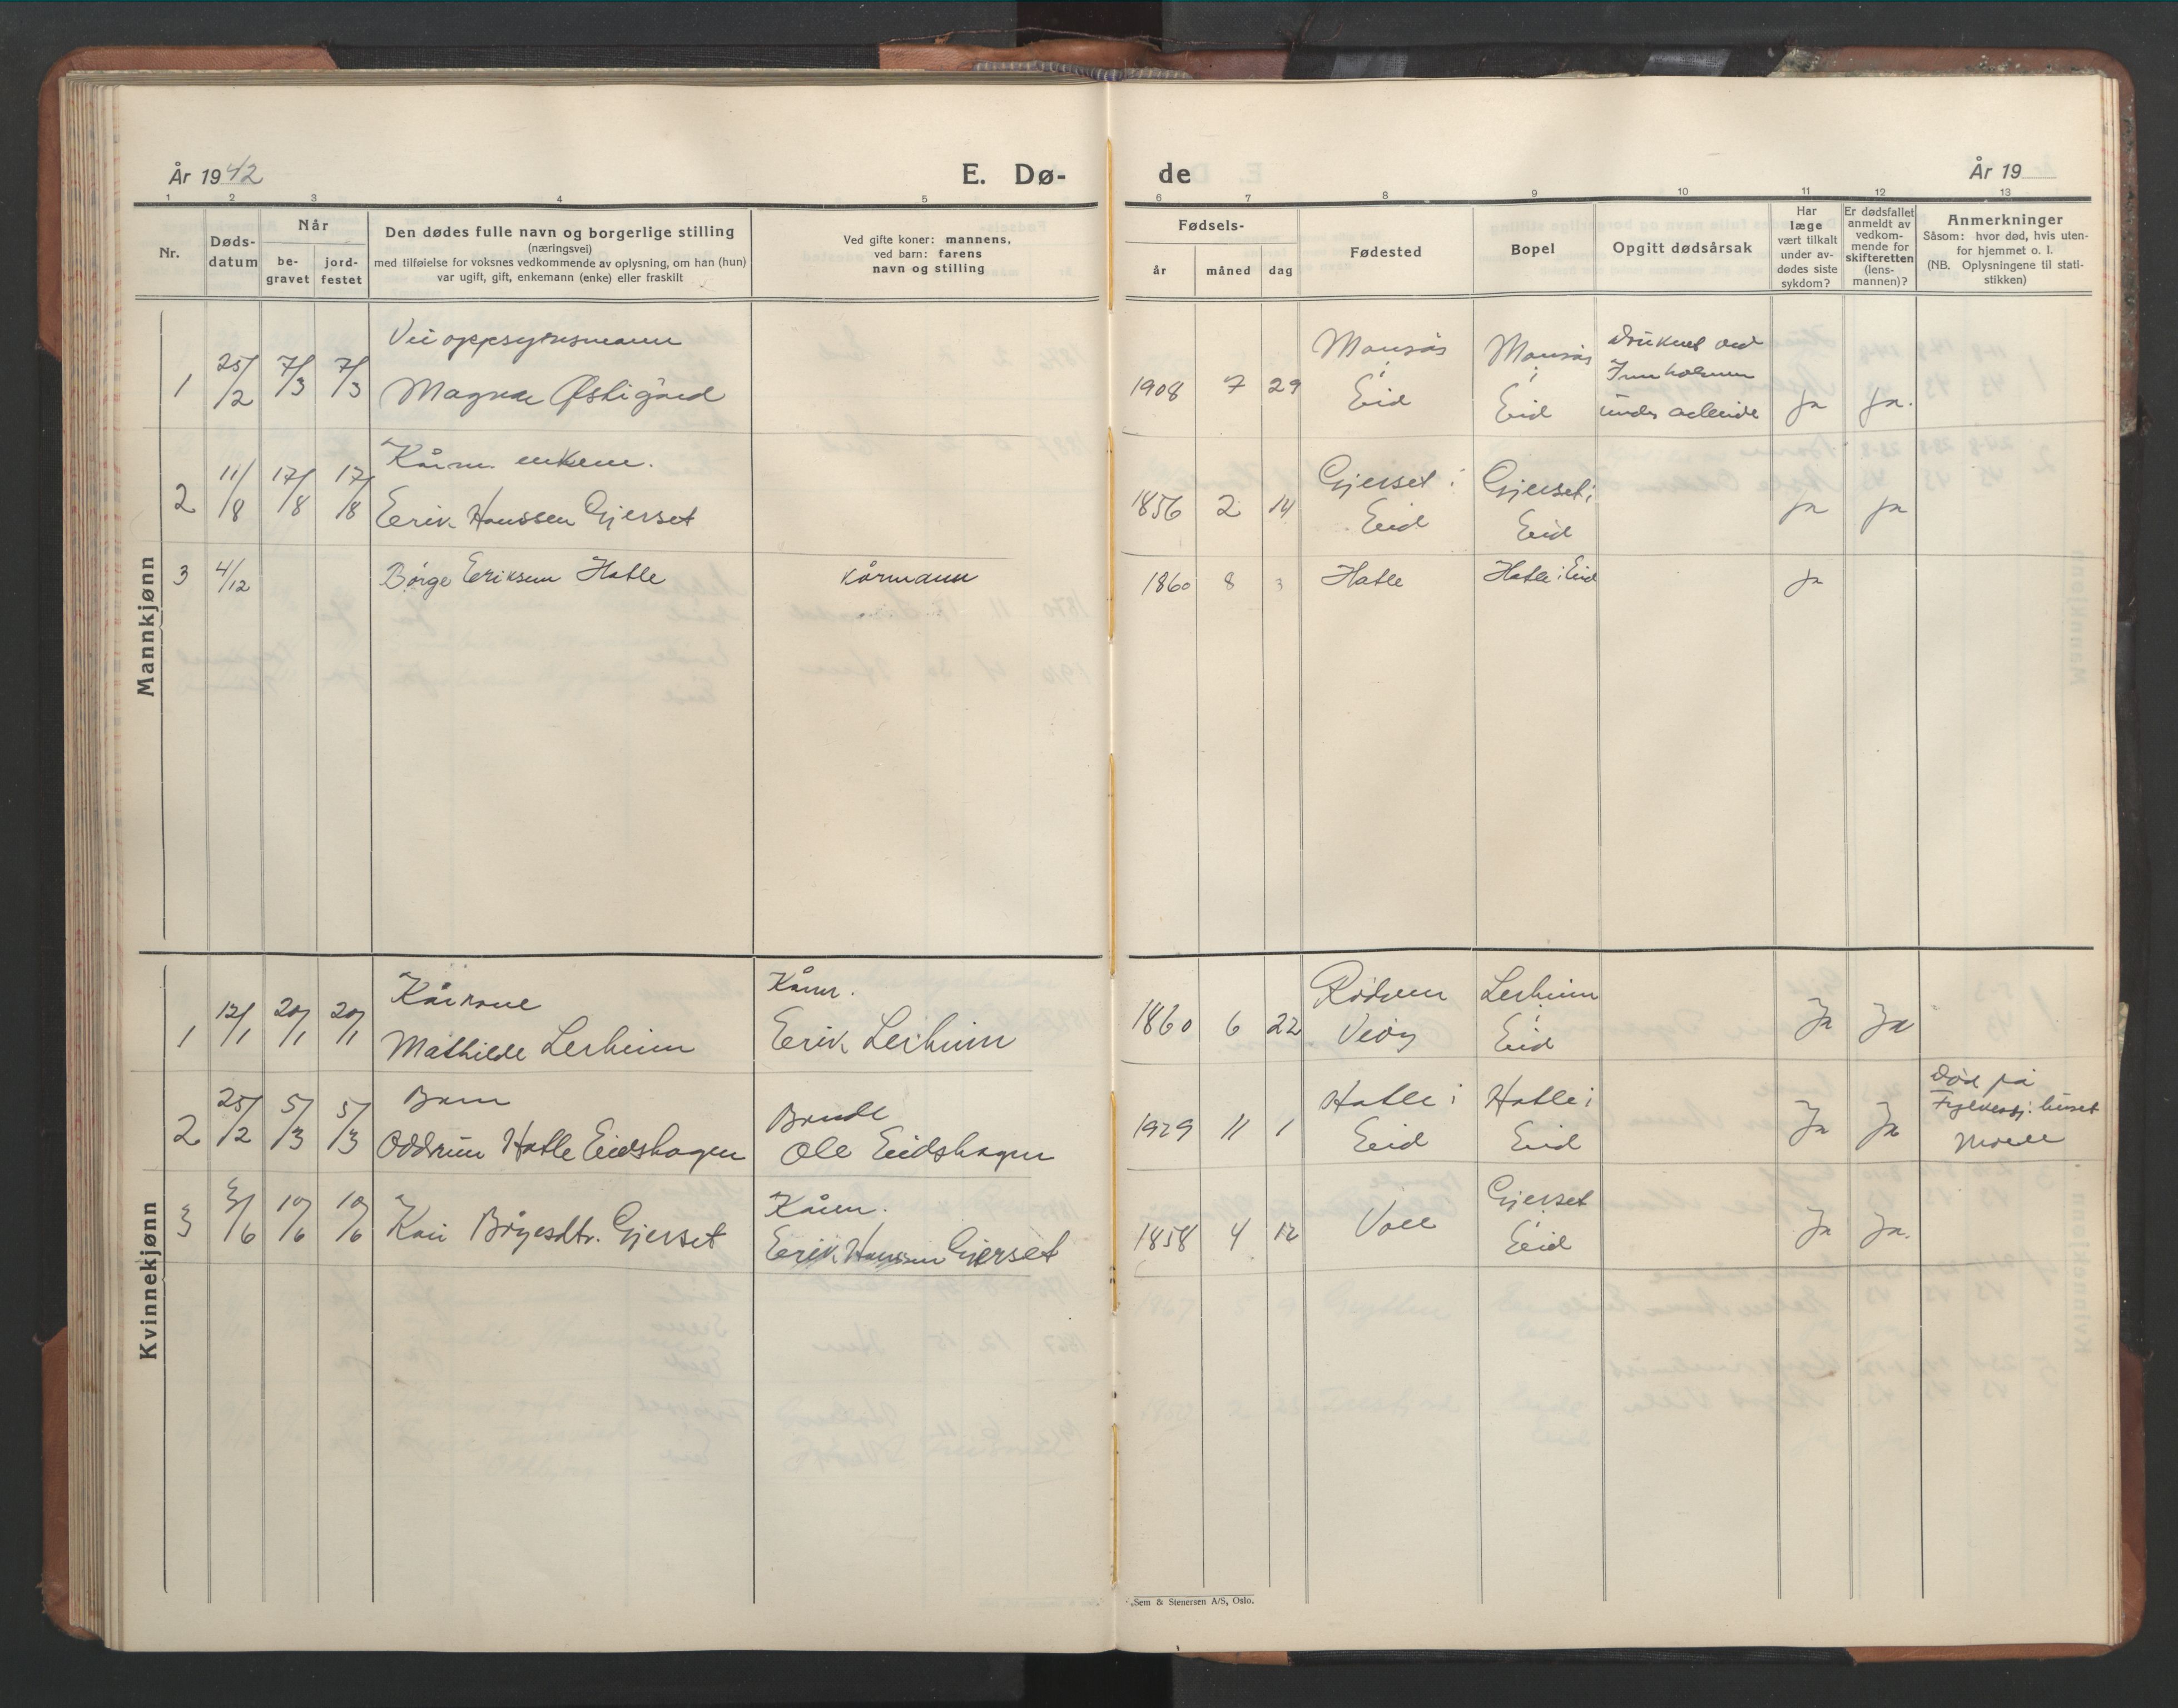 År 1942
E. Dø-
de
År 19
1 2 3 4 5 6 7 8 9 10 11 12 13
Nr.
Døds-
datum
Når
be-
gravet
jord-
festet
Den dødes fulle navn og borgerlige stilling
(næringsvei)
med tilføielse for voksnes vedkommende av oplysning, om han (hun)
var ugift, gift, enkemann (enke) eller fraskilt
Ved gifte koner: mannens,
ved barn: farens
navn og stilling
Fødsels-
år måned dag
Fødested
Bopel
Opgitt dødsårsak
Har
læge
vært tilkalt
under av-
dødes siste
sykdom?
Er dødsfallet
anmeldt av
vedkom-
mende for
skifteretten
(lens-
mannen)?
Anmerkninger
Såsom: hvor død, hvis uten-
for hjemmet o. l.
(NB. Oplysningene til stati-
stikken)
Mannkjønn
Veioppsynsmann
1 25/2 7/3 7/3 Magnar Østigård
1908 7 29
Månsås
i
Eid
Månsås
i
Eid
Druknet ved
under arbeide
ja ja.
Kårm. enkem.
2 11/8 17/8 17/8 Erik Hanssen Gjerset
1856 2 14
Gjerset i
Eid
Gjerset i
Eid
ja ja
3 4/12 Børge Eriksen Hatle kårmann
1860 8 3 Hatle Hatle i Eid ja
Kvinnekjønn
Kårkone
1 12/1 20/1 20/1 Mathilde Lerheim
Kårm.
Erik Lerheim
1860 6 22
Rødven
Veøy
Lerheim
i
Eid
Ja Ja
Barn
2 25/2 5/3 5/3 Oddrun Hatle Eidshagen
Bonde
Ole Eidshagen
1929 11 1
Hatle i
Eid
Hatle i
Eid
Ja Ja
Død på
Fylkessj.huset
Molde
3 3/6 10/6 10/6 Kari Børgesdtr. Gjerset
Kårm.
Erik Hanssen Gjerset
1858 4 12
Voll
Gjerset
i
Eid
Ja Ja.
Sem & Stenersen A/S, Oslo.